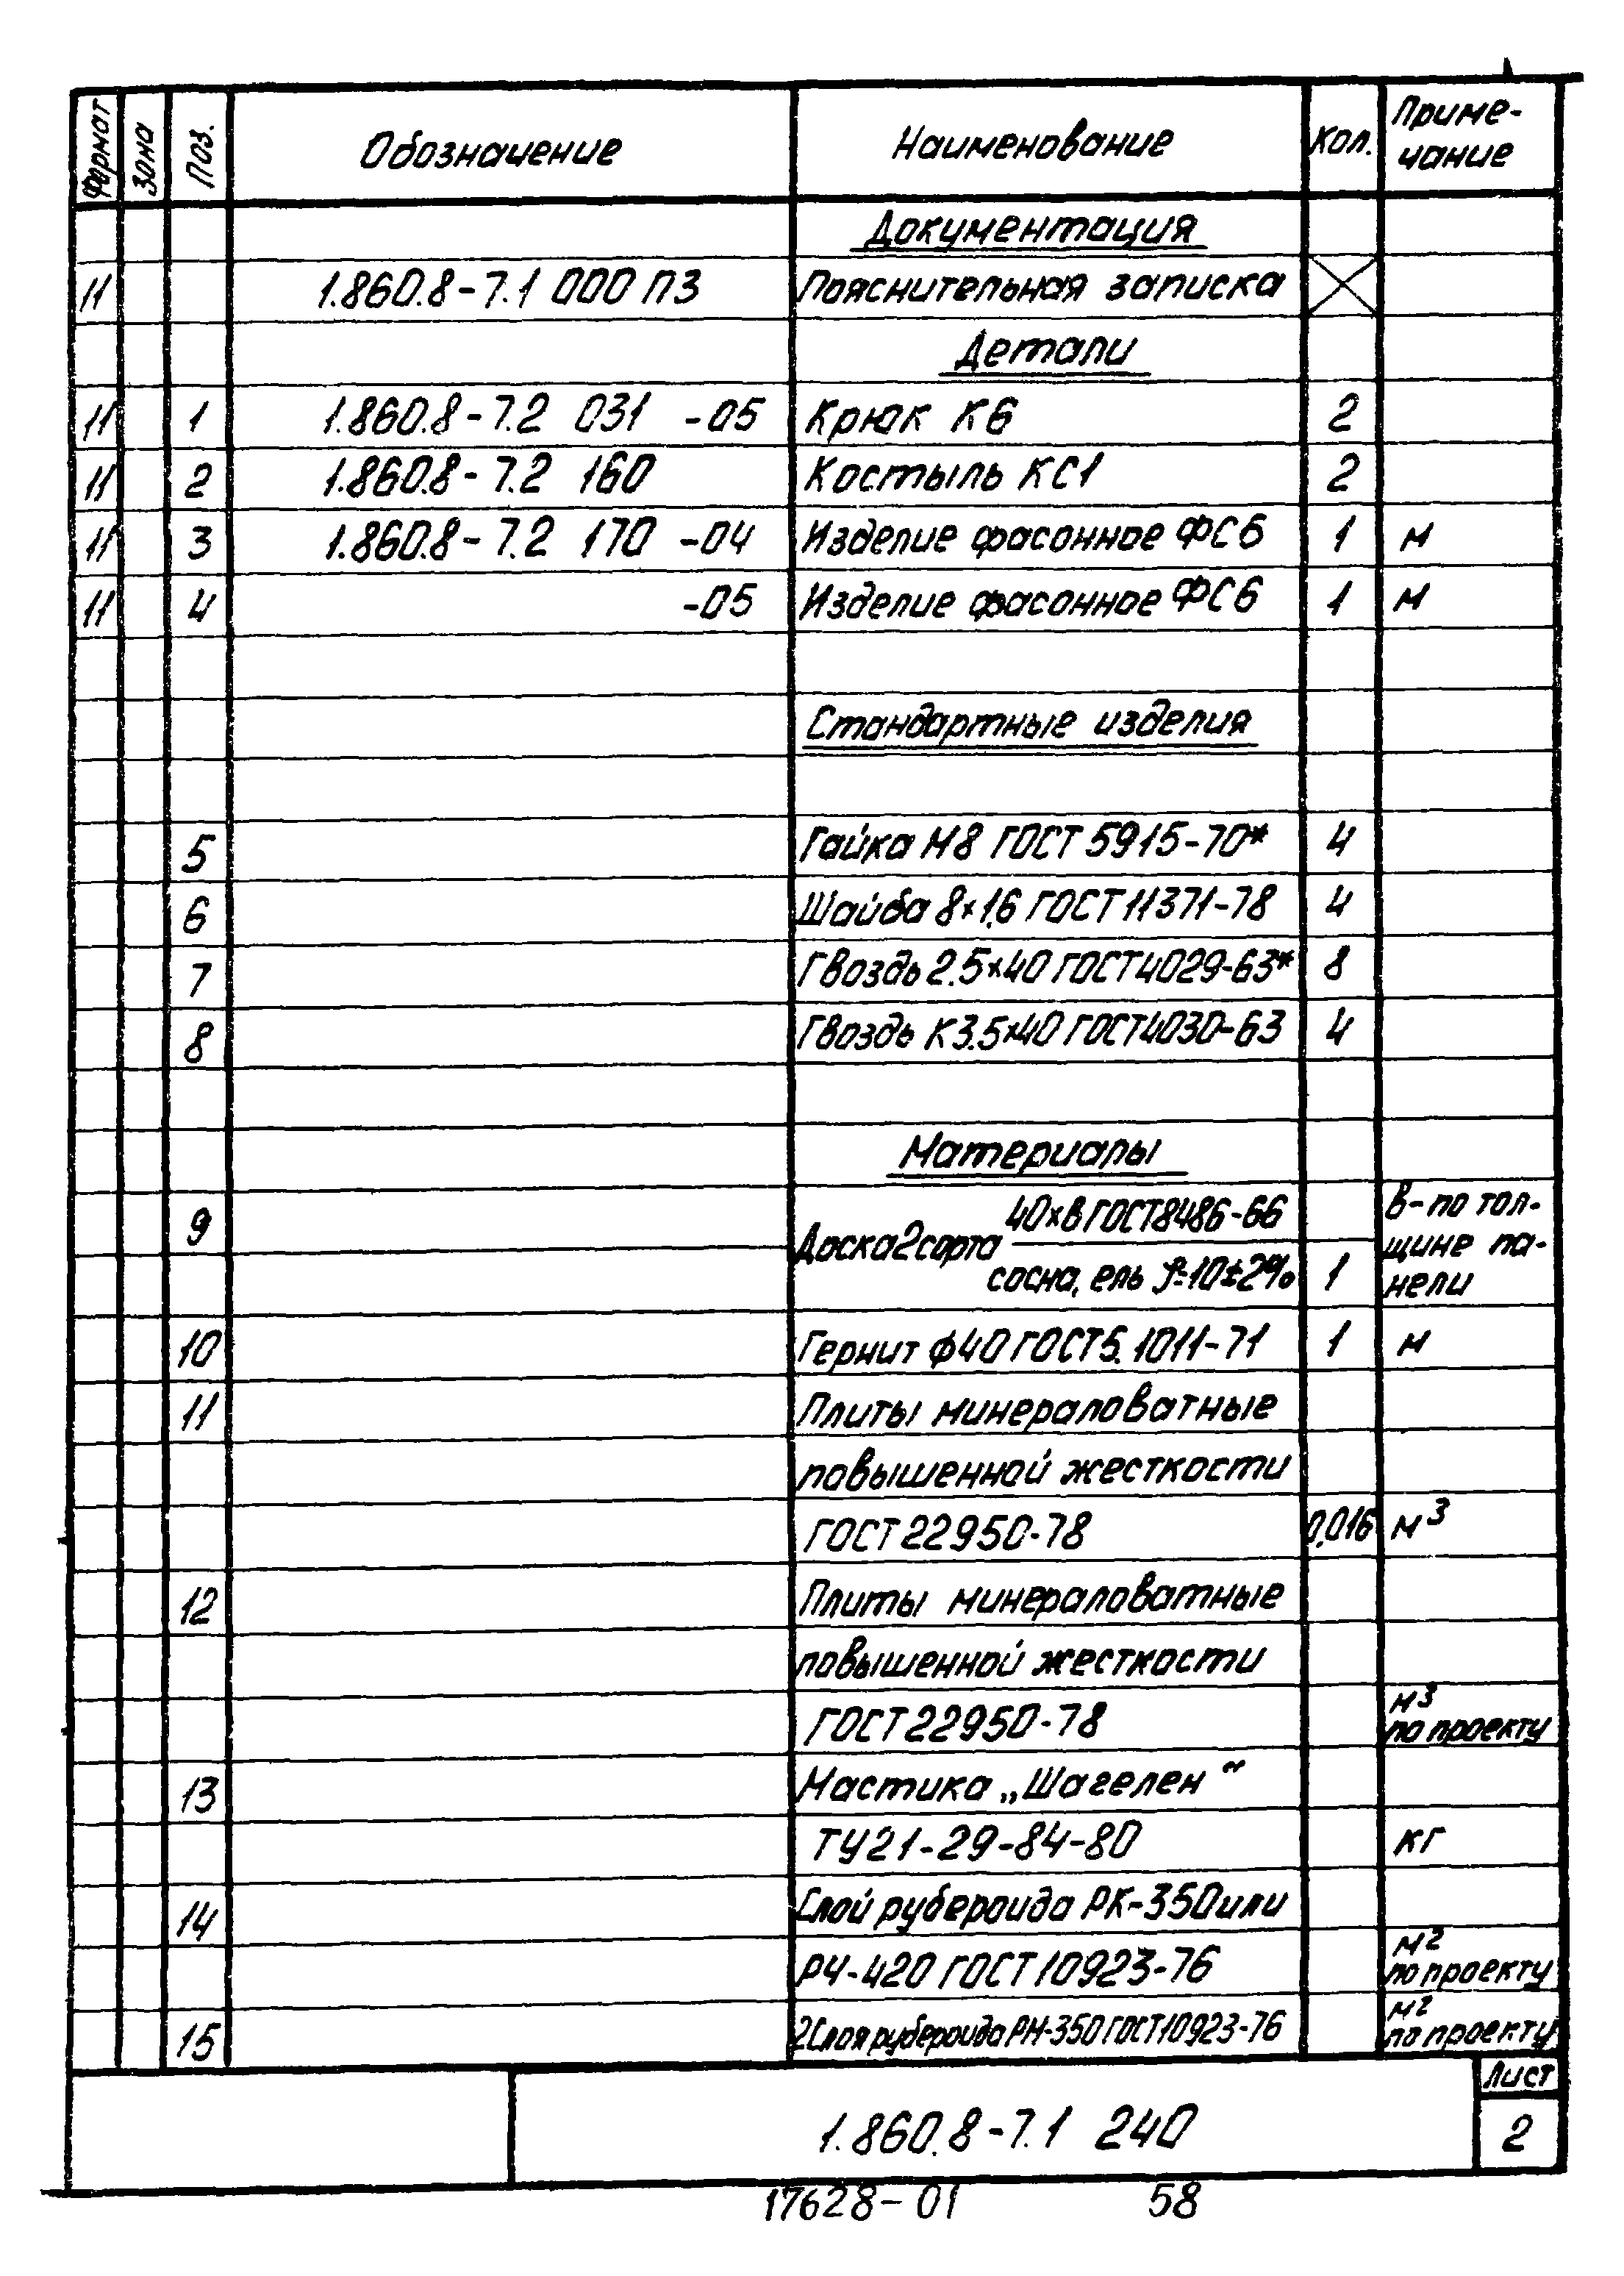 Формат Зона Поз. Обозначение Наименование Кол. Приме-
чание
Документация
11 1.860.8-7.1 000 ПЗ Пояснительная записка
Детали
11 1 1.860.8-7.2 031 -05 Крюк К6 2
11 2 1.860.8-7.2 160 Костыль КС1 2
11 3 1.860.8-7.2 170 -04 Изделие фасонное ФС5 1 м
11 4 -05 Изделие фасонное ФС6 1 м
Стандартные изделия
5 Гайка М8 ГОСТ 5915-70* 4
6 Шайба 8×1,6 ГОСТ 11371-78 4
7 Гвоздь 2.5×40 ГОСТ 4029-63* 8
8 Гвоздь К3.5×40 ГОСТ 4030-63 4
Материалы
9 Доска 2 сорта 40×В ГОСТ 8486-66 В-по тол-
щине па-
сосна, ель f=10±2% 1 нели
10 Гернит ф40 ГОСТ 5.1011-71 1 м
11 Плиты минераловатные
повышенной жесткости
ГОСТ 22950-78 0,016 м³
12 Плиты минераловатные
повышенной жесткости
ГОСТ 22950-78 м³
по проекту
13 Мастика „Шагелен“
ТУ21-29-84-80 кг
14 Слой рубероида РК-350 или
РЧ-420 ГОСТ 10923-76 м²
по проекту
15 2 Слоя рубероида РМ-350 ГОСТ 10923-76 м²
по проекту
Лист
1.860.8-7.1 240 2
17628-01 58